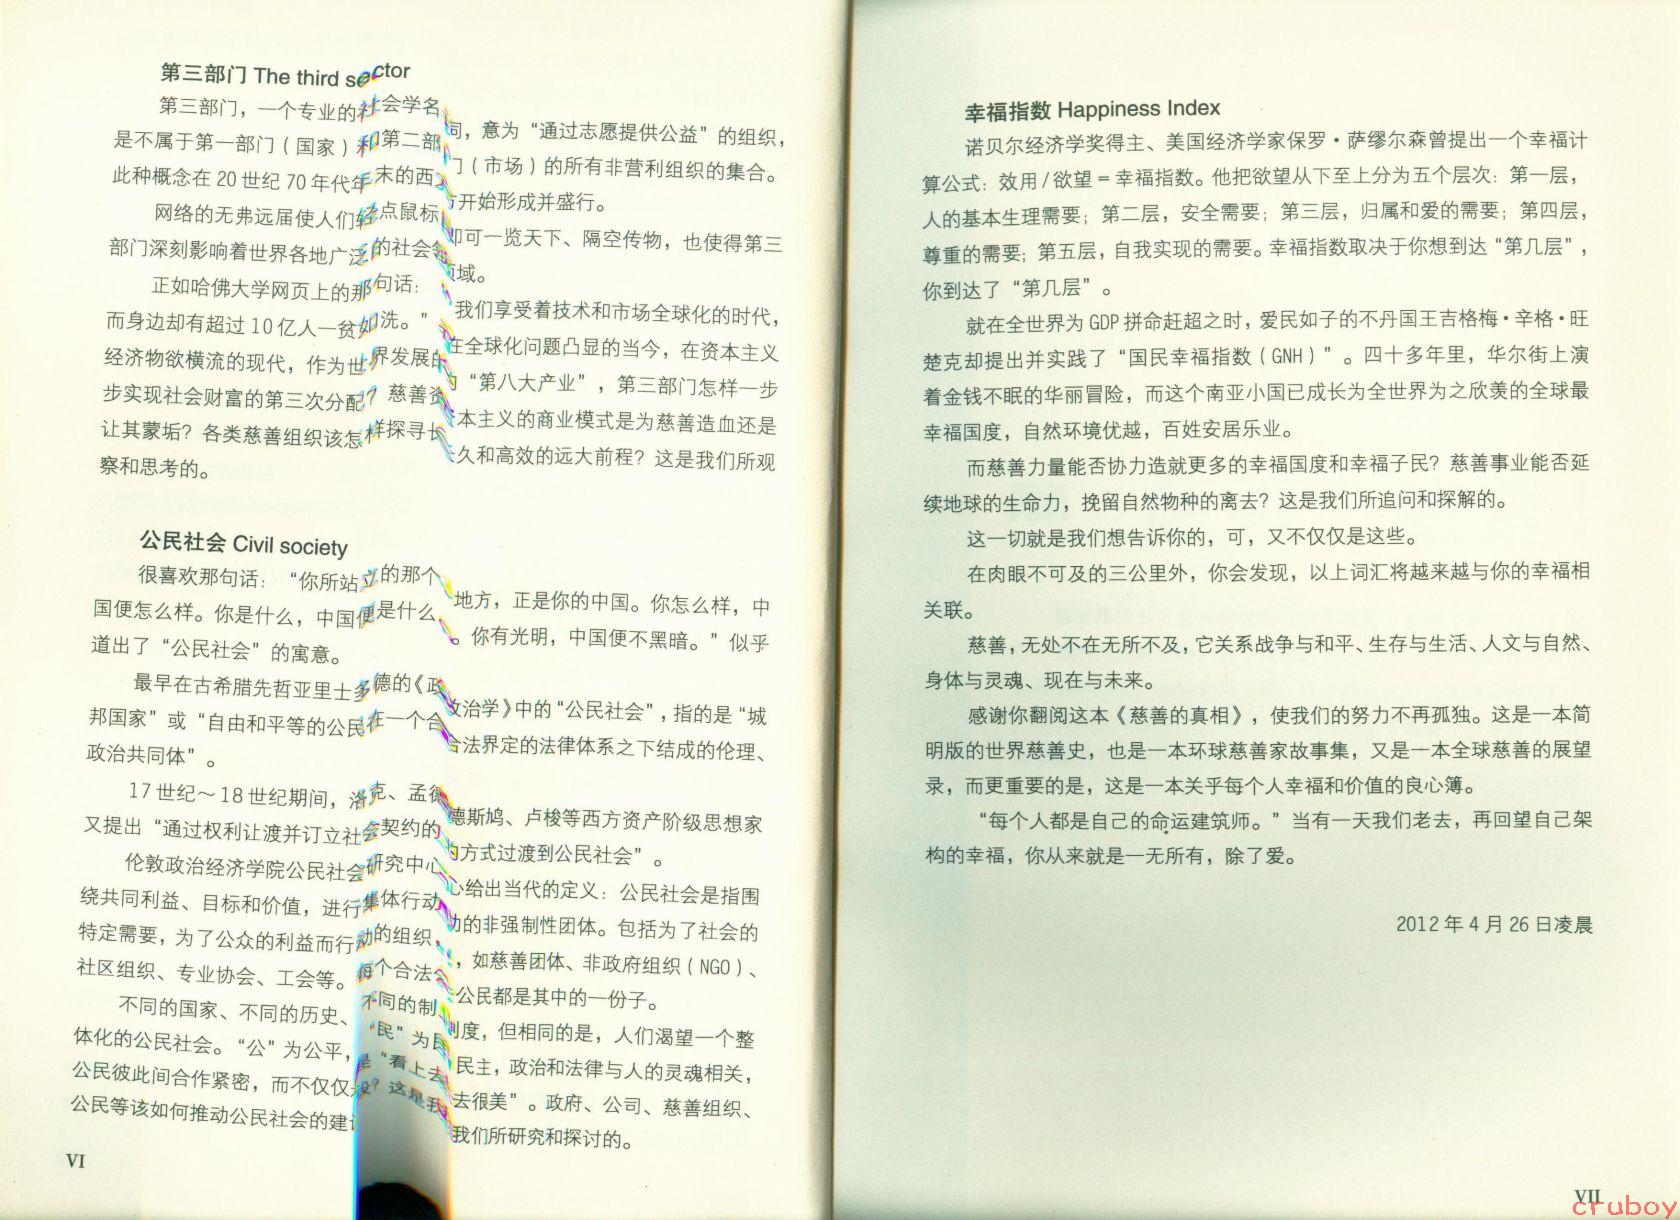 第三部门 The third sector
第三部门，一个专业的社会学名词，意为“通过志愿提供公益”的组织，
是不属于第一部门（国家）和第二部门（市场）的所有非营利组织的集合。
此种概念在 20 世纪 70 年代年末的西方开始形成并盛行。
网络的无弗远届使人们轻点鼠标即可一览天下、隔空传物，也使得第三
部门深刻影响着世界各地广泛的社会领域。
正如哈佛大学网页上的那句话：“我们享受着技术和市场全球化的时代，
而身边却有超过 10 亿人一贫如洗。”在全球化问题凸显的当今，在资本主义
经济物欲横流的现代，作为世界发展的“第八大产业”，第三部门怎样一步
步实现社会财富的第三次分配？慈善资本主义的商业模式是为慈善造血还是
让其蒙垢？各类慈善组织该怎样探寻长久和高效的远大前程？这是我们所观
察和思考的。
公民社会 Civil society
很喜欢那句话：“你所站立的那个地方，正是你的中国。你怎么样，中
国便怎么样。你是什么，中国便是什么。你有光明，中国便不黑暗。”似乎
道出了“公民社会”的寓意。
最早在古希腊先哲亚里士多德的《政治学》中的“公民社会”，指的是“城
邦国家”或“自由和平等的公民在一个合法界定的法律体系之下结成的伦理、
政治共同体”。
17 世纪～18 世纪期间，洛克、孟德斯鸠、卢梭等西方资产阶级思想家
又提出“通过权利让渡并订立社会契约的方式过渡到公民社会”。
伦敦政治经济学院公民社会研究中心给出当代的定义：公民社会是指围
绕共同利益、目标和价值，进行集体行动的非强制性团体。包括为了社会的
特定需要，为了公众的利益而行动的组织，如慈善团体、非政府组织（NGO）、
社区组织、专业协会、工会等。每个合法公民都是其中的一份子。
不同的国家、不同的历史、不同的制度，但相同的是，人们渴望一个整
体化的公民社会。“公”为公平，“民”为民主，政治和法律与人的灵魂相关，
公民彼此间合作紧密，而不仅仅是“看上去很美”。政府、公司、慈善组织、
公民等该如何推动公民社会的建设？这是我们所研究和探讨的。
VI
幸福指数 Happiness Index
诺贝尔经济学奖得主、美国经济学家保罗·萨缪尔森曾提出一个幸福计
算公式：效用/欲望＝幸福指数。他把欲望从下至上分为五个层次：第一层，
人的基本生理需要；第二层，安全需要；第三层，归属和爱的需要；第四层，
尊重的需要；第五层，自我实现的需要。幸福指数取决于你想到达“第几层”，
你到达了“第几层”。
就在全世界为 GDP 拼命赶超之时，爱民如子的不丹国王吉格梅·辛格·旺
楚克却提出并实践了“国民幸福指数（GNH）”。四十多年里，华尔街上演
着金钱不眠的华丽冒险，而这个南亚小国已成长为全世界为之欣羡的全球最
幸福国度，自然环境优越，百姓安居乐业。
而慈善力量能否协力造就更多的幸福国度和幸福子民？慈善事业能否延
续地球的生命力，挽留自然物种的离去？这是我们所追问和探解的。
这一切就是我们想告诉你的，可，又不仅仅是这些。
在肉眼不可及的三公里外，你会发现，以上词汇将越来越与你的幸福相
关联。
慈善，无处不在无所不及，它关系战争与和平、生存与生活、人文与自然、
身体与灵魂、现在与未来。
感谢你翻阅这本《慈善的真相》，使我们的努力不再孤独。这是一本简
明版的世界慈善史，也是一本环球慈善家故事集，又是一本全球慈善的展望
录，而更重要的是，这是一本关乎每个人幸福和价值的良心簿。
“每个人都是自己的命运建筑师。”当有一天我们老去，再回望自己架
构的幸福，你从来就是一无所有，除了爱。
2012 年 4 月 26 日凌晨
VII
cruboy